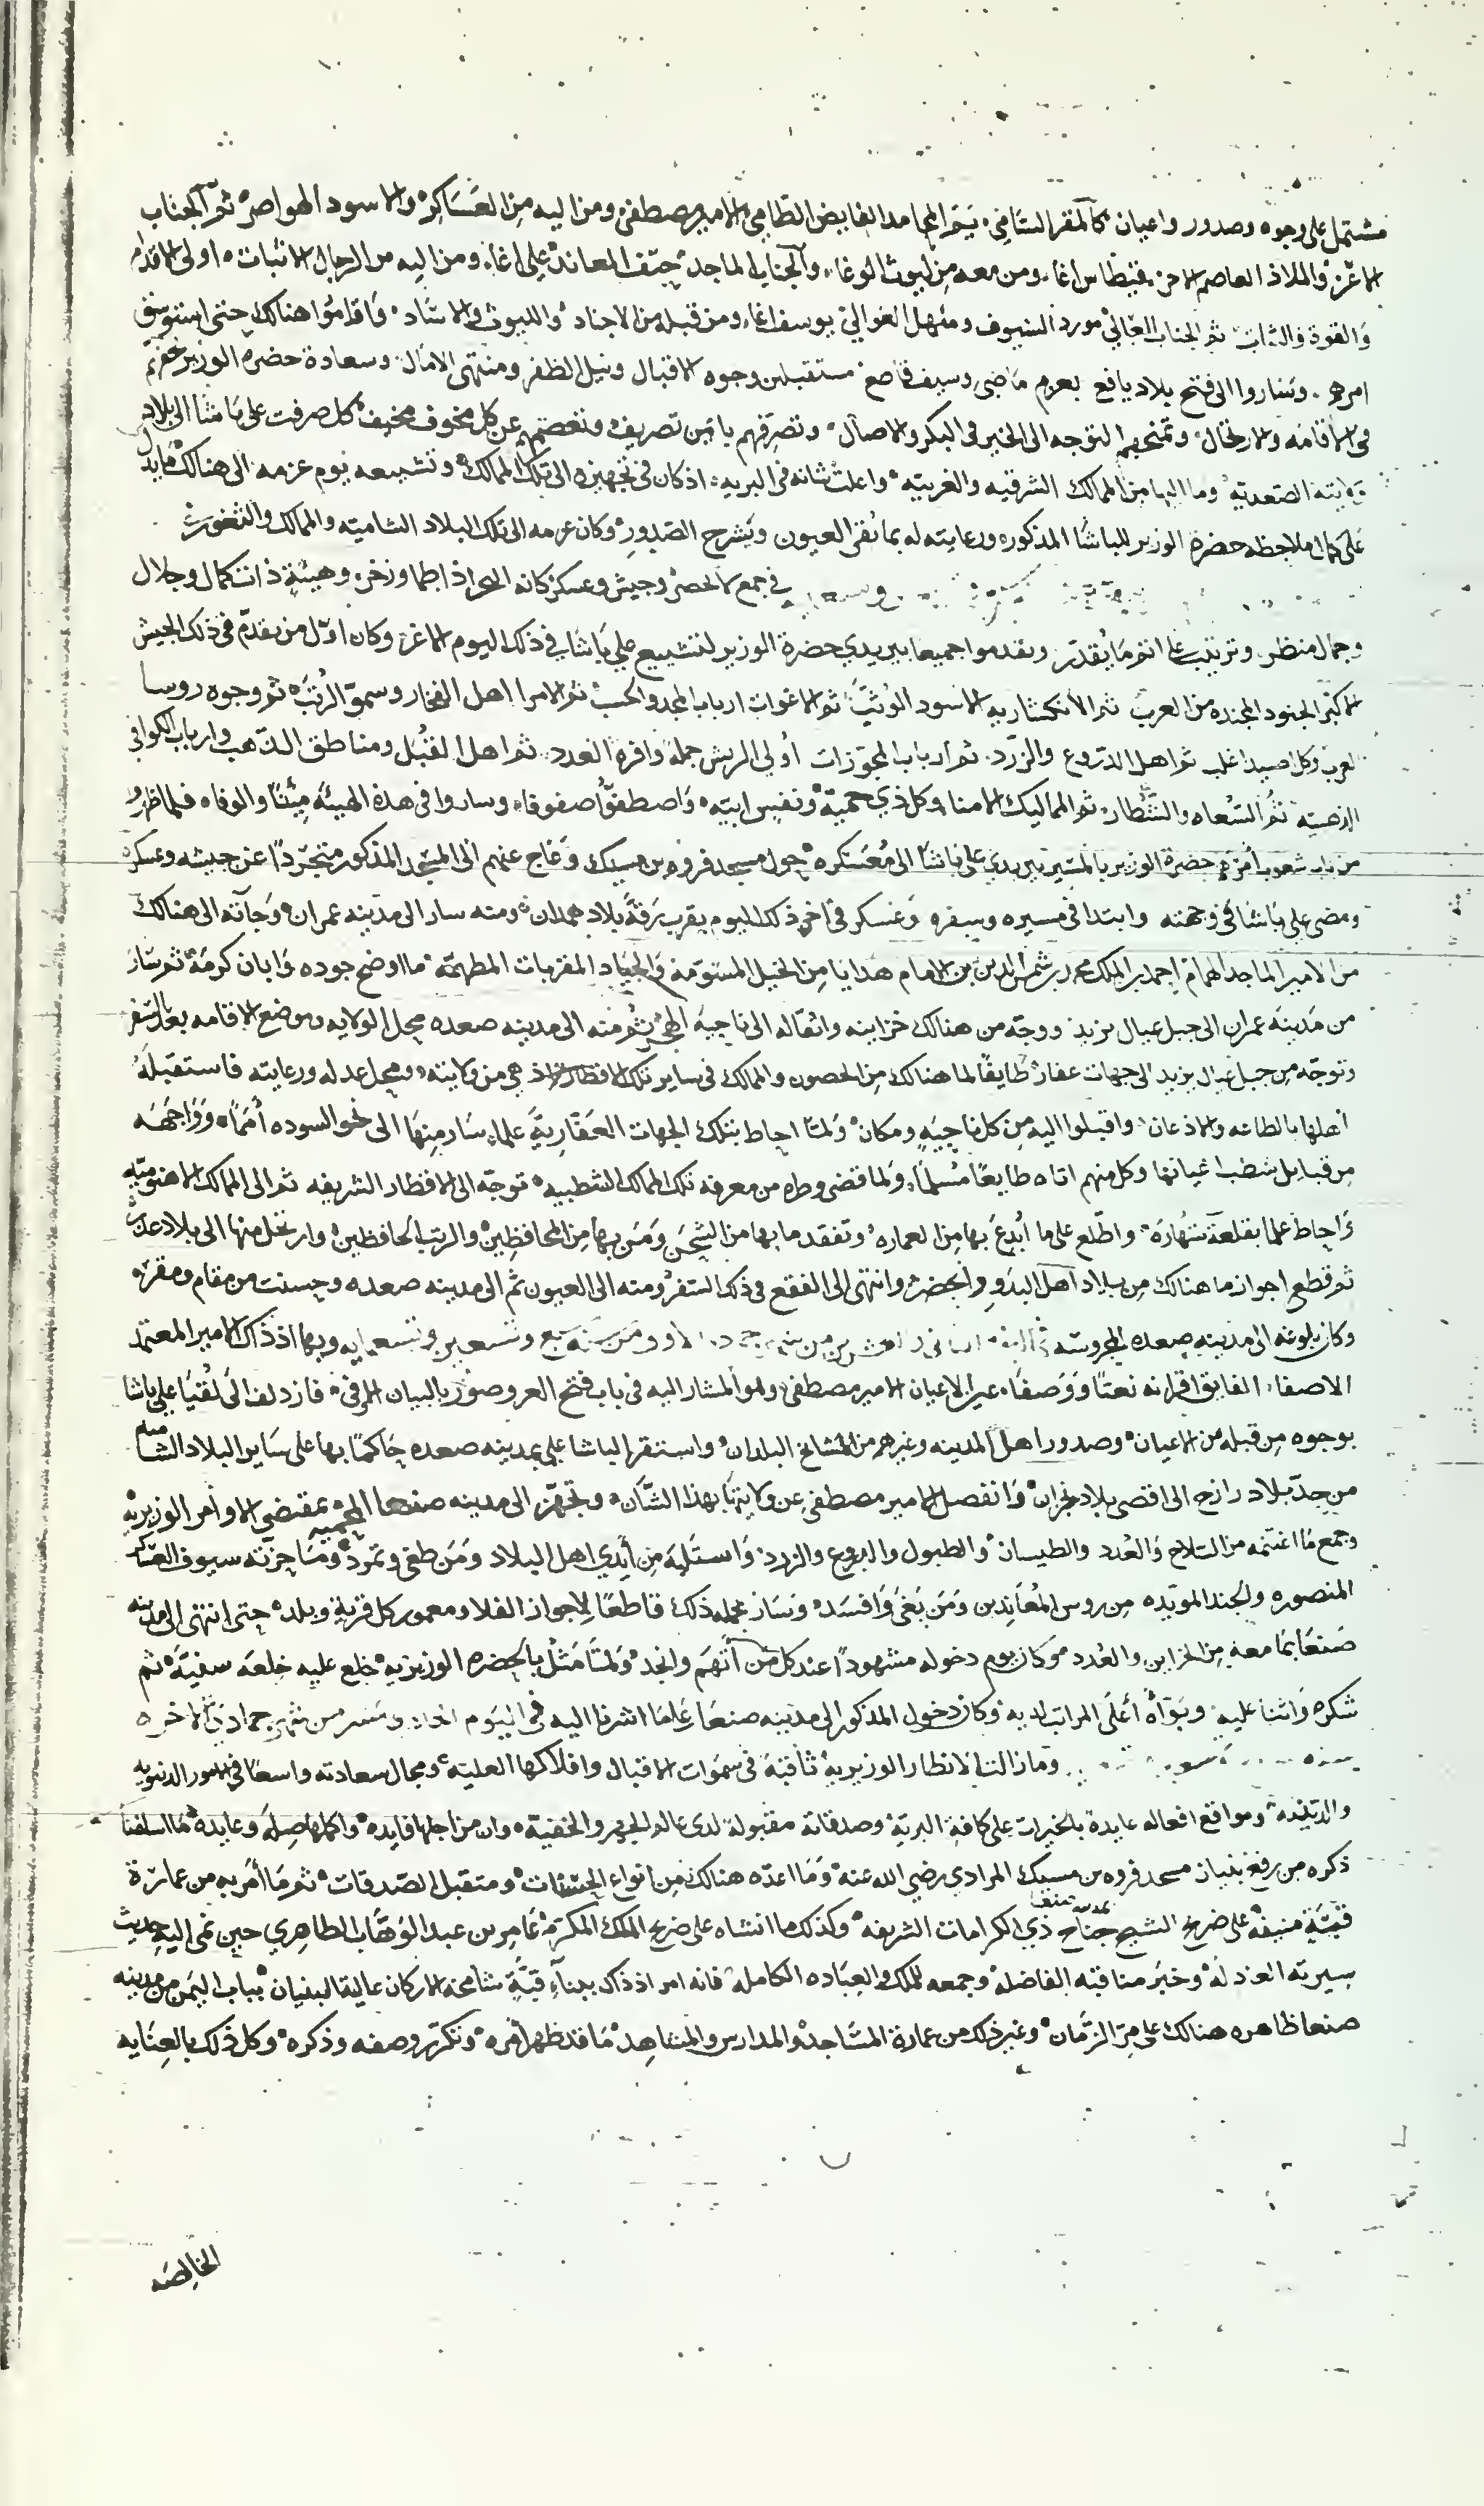 مشتمل على وجوه وصدور واعيان كالمقر السامى يم المحامد الفايض الطامى الامير مصطفى ومن اليه من العساكر والاسود الهواصر ثم الجناب
الاعز والملاذ العاصم الاحرز فيطاس اغا ومن معه من ليوث الوغا والجناب الماجد حتف المعاند على اغا ومن اليه من الرجال الاثبات اولى الاقدام
والقوة والثبات ثم الجناب العالي مورد السيوف ومنهل العوالي يوسف اغا ومن قبله من الاجناد والليوث والاساد واقاموا هنالك حتى استوسق
امرهم وساروا الى فتح بلاد يافع بعزم ماضى وسيف قاصع مستقبلين وجوه الاقبال ونيل الظفر ومنتهى الامال وسعادة حضرة الوزير تخفرهم
فى الاقامه والارتحال وتمنحهم التوجه الى الخير فى البكر والاصال وتصرفهم باتين تصريف وتعصمهم عن كل مخوف مخيف كل صرفت على باشا الى بلاد
ولايته الصعديه وما اليها من الممالك الشرقيه والغربيه واعلت شانه فى البريه اذ كان فى تجهيزه الى تلك الممالك وتشييعه يوم عزمه الى هنالك مايدل
على كمال ملاحظه حضرة الوزير للباشا المذكور ورعايته له بما تقر العيون ويشرح الصدور وكان عزمه الى تلك البلاد الشاميه والممالك والثغور
فى جمع لا يحصر وجيش وعسكر كانه البحر اذا طما وزخر وهيئة ذات كمال وجلال
وجمال منظر وترتيب على اتم ما يقدر وتقدموا جميعا بين يدي حضرة الوزير لتشييع على باشا فى ذلك اليوم الاغر وكان اول من تقدم فى ذلك الجيش
الاكبر الجنود المجنده من العرب ثم الانكشاريه الاسود الوثب ثم الاغوات ارباب المجد والحسب ثم الامرا اهل الفخار وسمو الرتب ثم وجوه روسا
العرب وكل اصيد اغلب ثم اهل الدروع والزرد ثم ارباب المجوزات أولي الريش جملة وافرة العدد ثم اهل القنبل ومناطق الذهب وارباب الكوافي
الذهبيه ثم السعاه والشطار ثم المماليك الامنا وكل ذي حمية ونفس ابيه واصطفوا صفوفا وساروا فى هذه الهيئه مئينا والوفا فلما ظهروا
من باب شعوب أمرهم حضرة الوزير بالمسير بين يدي على باشا الى معسكره حول مسجد فروه بن مسيك وعاج عنهم الى المسجد المذكور متجردا عن جيشه وعسكره
ومضى على باشا فى وجهته وابتدا فى مسيره وسفره وعسكر فى اخر ذلك اليوم بقرب رقة بلاد همدان ومنه سار الى مدينه عمران وجآته الى هنالك
من الامير الماجد الهمام احمد بن الملك محمد بن شمس الدين بن الامام هدايا من الخيل المسومه والجياد المقربات المطهمه ما اوضح جوده وابان كرمه ثم سار
من مدينة عمران الى جبل عيال يزيد ووجه من هنالك خزاينه واثقاله الى ناحية ثم منه الى مدينه صعده محل الولايه وموضع الاقامه بعد السفر
وتوجه من جبل عيال يزيد الى جهات عفار طايفا لما هنالك من الحصون والممالك فى ساير تلك الاقطار اذ هي من ولايته ومحل عدله ورعايته فاستقبله
أهلها بالطاعه والاذعان واقبلوا اليه من كل ناحيه ومكان ولما احاط بتلك الجهات العفاريه علما سار منها الى نحو السوده أمما وواجهه
من قبايل شطب اعيانها وكل منهم اتاه طايعا مسلما ولما قضى وطره من معرفه تلك الممالك الشطبيه توجه الى الاقطار الشريفه ثم الى الممالك الاهنوميه
واحاط علما بقلعة شهاره واطلع على ما أبدع بها من العماره وتفقد ما بها من الشحن ومن بها من المحافظين والرتب الحافظين وارتحل منها الى بلاد عذر
ثم قطع اجواز ما هنالك من بلاد اهل البدو والحضر وانتهى الى الفقع فى ذلك السفر ومنه الى العيون ثم الى مدينه صعده وحسنت من مقام ومقر
وكان بلوغه الى مدينه صعده المحروسه وتسعين وتسعمايه وبها اذ ذاك الامير المعتمد
الاصفا الفايق اقرانه نعتا ووصفا عين الاعيان الامير مصطفى وهو المشار اليه فى باب فتح العر وصور بالبيان الموفى فازدلف الى لقيا على باشا
بوجوه من قبله من الاعيان وصدور اهل المدينه وغيرهم من مشايخ البلدان واستقر الباشا على بمدينه صعده حاكما بها على ساير البلاد الشاميه
من حد بلاد رازح الى اقصى بلاد نجران وانفصل الامير مصطفى عن ولايتها بهذا الشأن وتجهز الى مدينه صنعا المحميه بمقتضى الاوامر الوزيريه
وجمع ما اغتنمه من السلاح والعدد والطيسان والطبول والدروع والزرد واستلبه من أيدي اهل البلاد ومن طغى وتمرد وما حزته سيوف العساكر
المنصوره والجند المويده من روس المعاندين ومن بغى وافسد وسار بجمله ذلك قاطعا لاجواز الفلا ومعمور كل قرية وبلد حتى انتهى الى مدينه
صنعا بما معه من الخزاين والعدد وكان يوم دخوله مشهودا عند كل من أتهم وانجد ولما مثل بالحضره الوزيريه خلع عليه خلعه سنيه ثم
شكره واثنا عليه وبوأه أعلى المراتب لديه وكان دخول المذكور الى مدينه صنعا على ما اشرنا اليه فى اليوم الحادي عشر من شهر جمادي الاخره
ومازالت الانظار الوزيريه ثاقبة فى سموات الاقبال وافلاكها العليه ومجال سعادته واسعا فى الامور الدنيويه
والدينيه ومواقع افعاله عايدة بالخيرات على كافة البريه وصدقاته مقبولة لدى عالم الجهر والخفية وان من اجلها فايده واكملها صلة وعايدة ما اسلفنا
ذكره من رفع بنيان مسجد فروه بن مسيك المرادي رضي الله عنه وما اعده هنالك من انواع الحسنات ومتقبل الصدقات ثم ما أمر به من عمارة
قبة منيفة على ضريح الشيخ جناح بمدينه صنعا ذي الكرامات الشريفه وكذلك ما انشاه على ضريح الملك المكرم عامر بن عبد الوهاب الطاهري حين نمى اليه حديث
سيرته العزله وخبر مناقبه الفاضله وجمعه للملك والعباده الكامله فانه امر اذ ذاك ببناء قبة شامخة الاركان عالية البنيان بباب اليمن من مدينه
صنعا ظاهره هنالك على مر الزمان وغير ذلك من عمارة المساجد والمدارس والمشاهد ما قد ظهر أمره وتكرر وصفه وذكره وكل ذلك بالعنايه
الخالصه